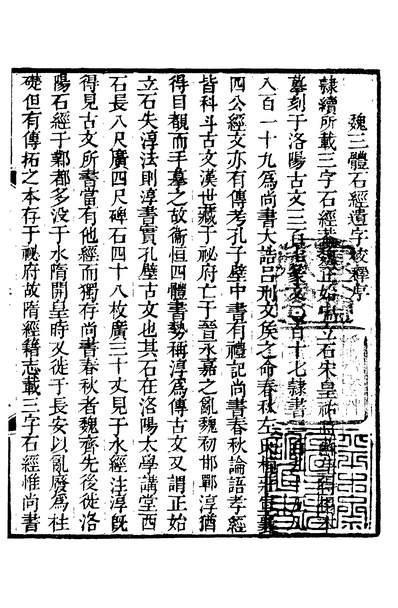 魏三體石經遺字攷釋序
隸續所載三字石經魏正始中立石宋皇祐蘇得本
摹刻于洛陽古文三百七篆文二百十七隸書二百九十
八百一十九為尚書大誥呂刑文矦之命春秋左氏桓莊宣襄
四公經文亦有傳考孔子壁中書有禮記尚書春秋論語孝經
皆科斗古文漢世藏于祕府亡于晉永嘉之亂魏初邯鄲淳猶
得目覩而手摹之故衞恒四體書勢稱淳為傳古文又謂正始
立石失淳法則淳書實孔壁古文也其石在洛陽太學講堂西
石長八尺廣四尺碑石四十八枚廣三十丈見于水經注淳旣
得見古文所書當有他經而獨存尚書春秋者魏齊先後徙洛
陽石經于鄴都多没于水隋開皇時又徙于長安以亂廢為柱
礎但有傳拓之本存于祕府故隋經籍志載三字石經惟尚書